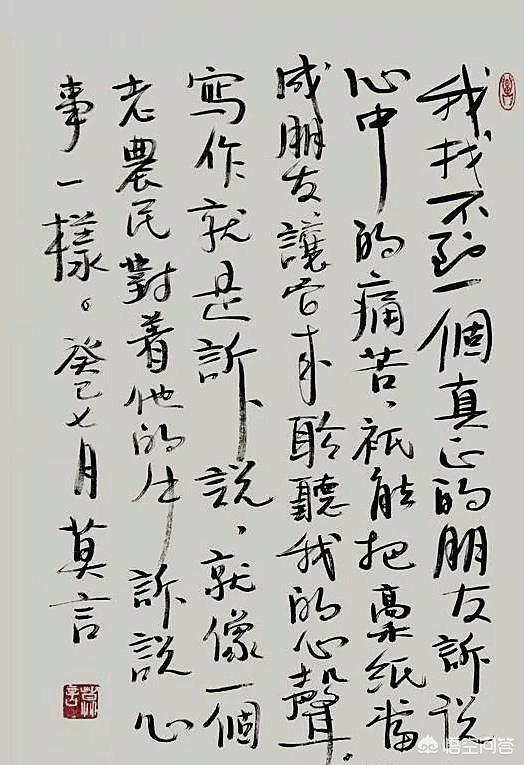 我找不到一個真正的朋友訴説
心中的痛苦、祇能把稾紙當
成朋友、讓它来聆聽我的心聲。
寫作就是訴説、就像一個
老農民對着他的牛訴説心
事一樣。癸巳七月莫言
莫言
悟空问答